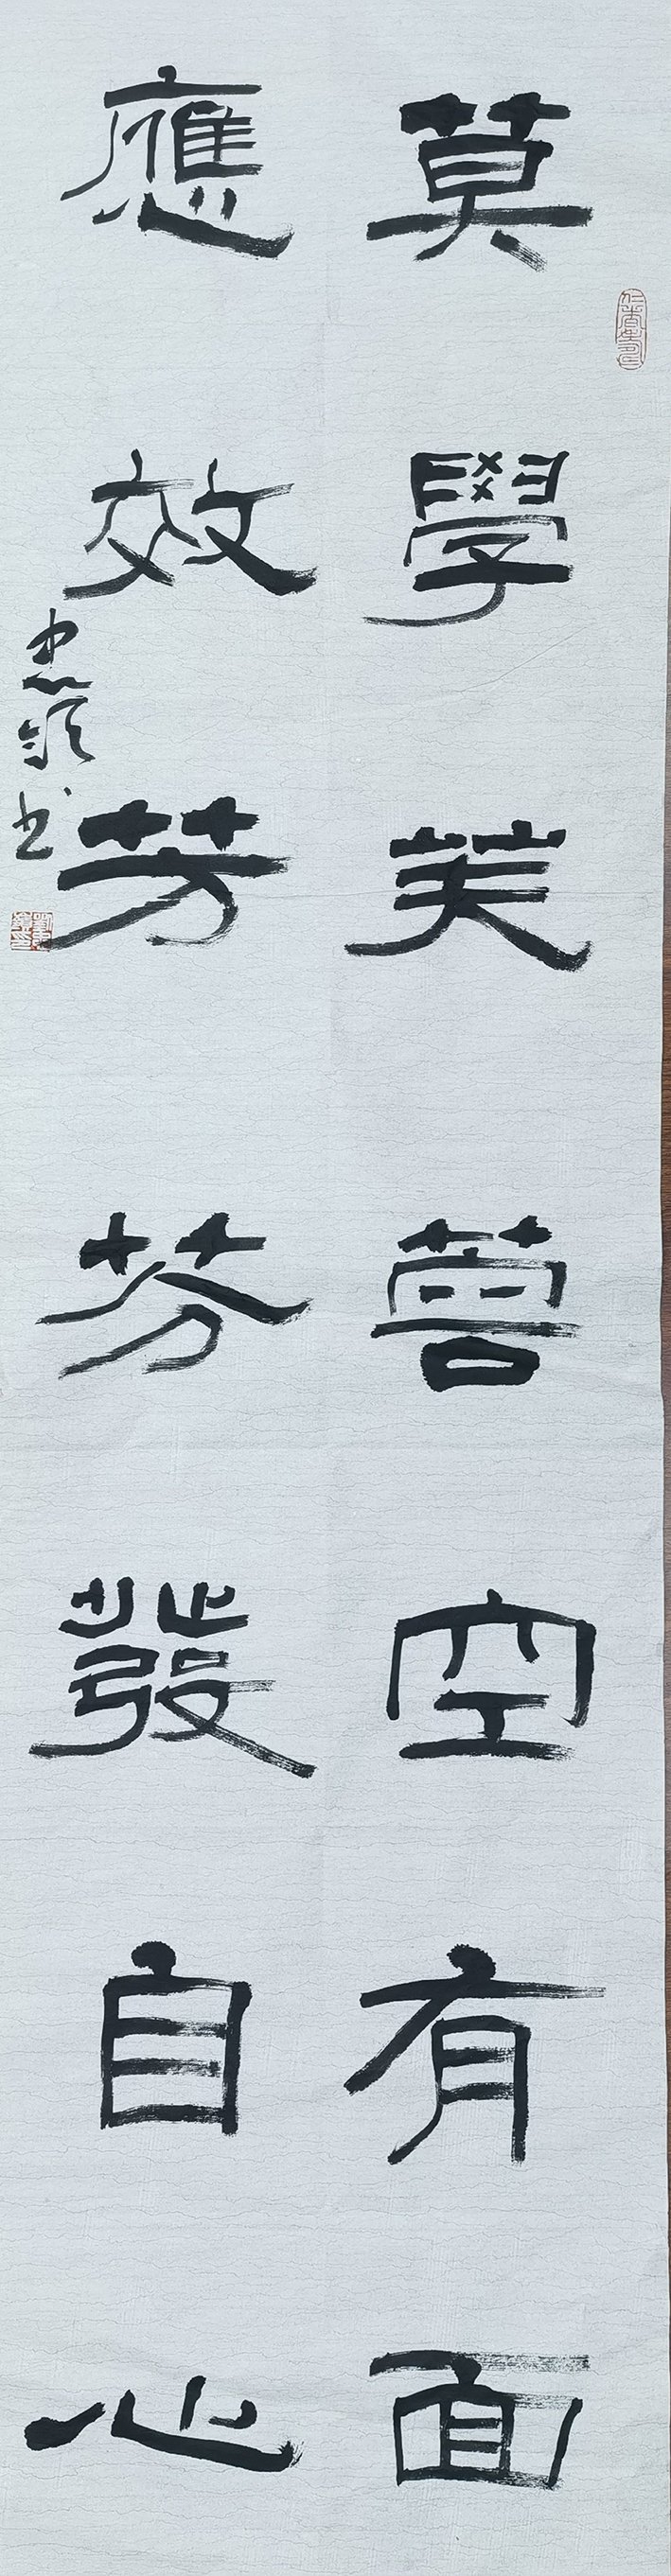 莫學芙蓉空有面
應效芳芬發自心
忠书